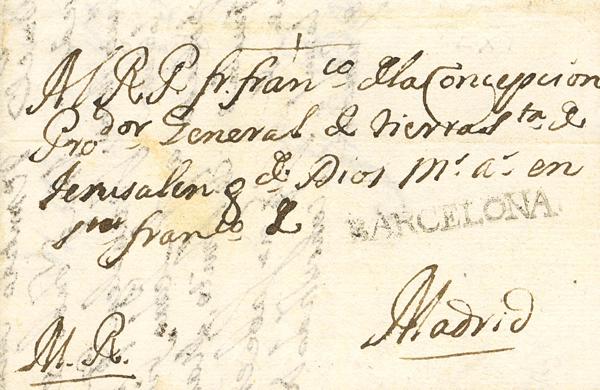 Al R P fr. franco dela Concepcion
Prodor General de tierras sta de
Jerusalen g de Dios Ms as en
sn franco de
BARCELONA
Madrid
M. R.